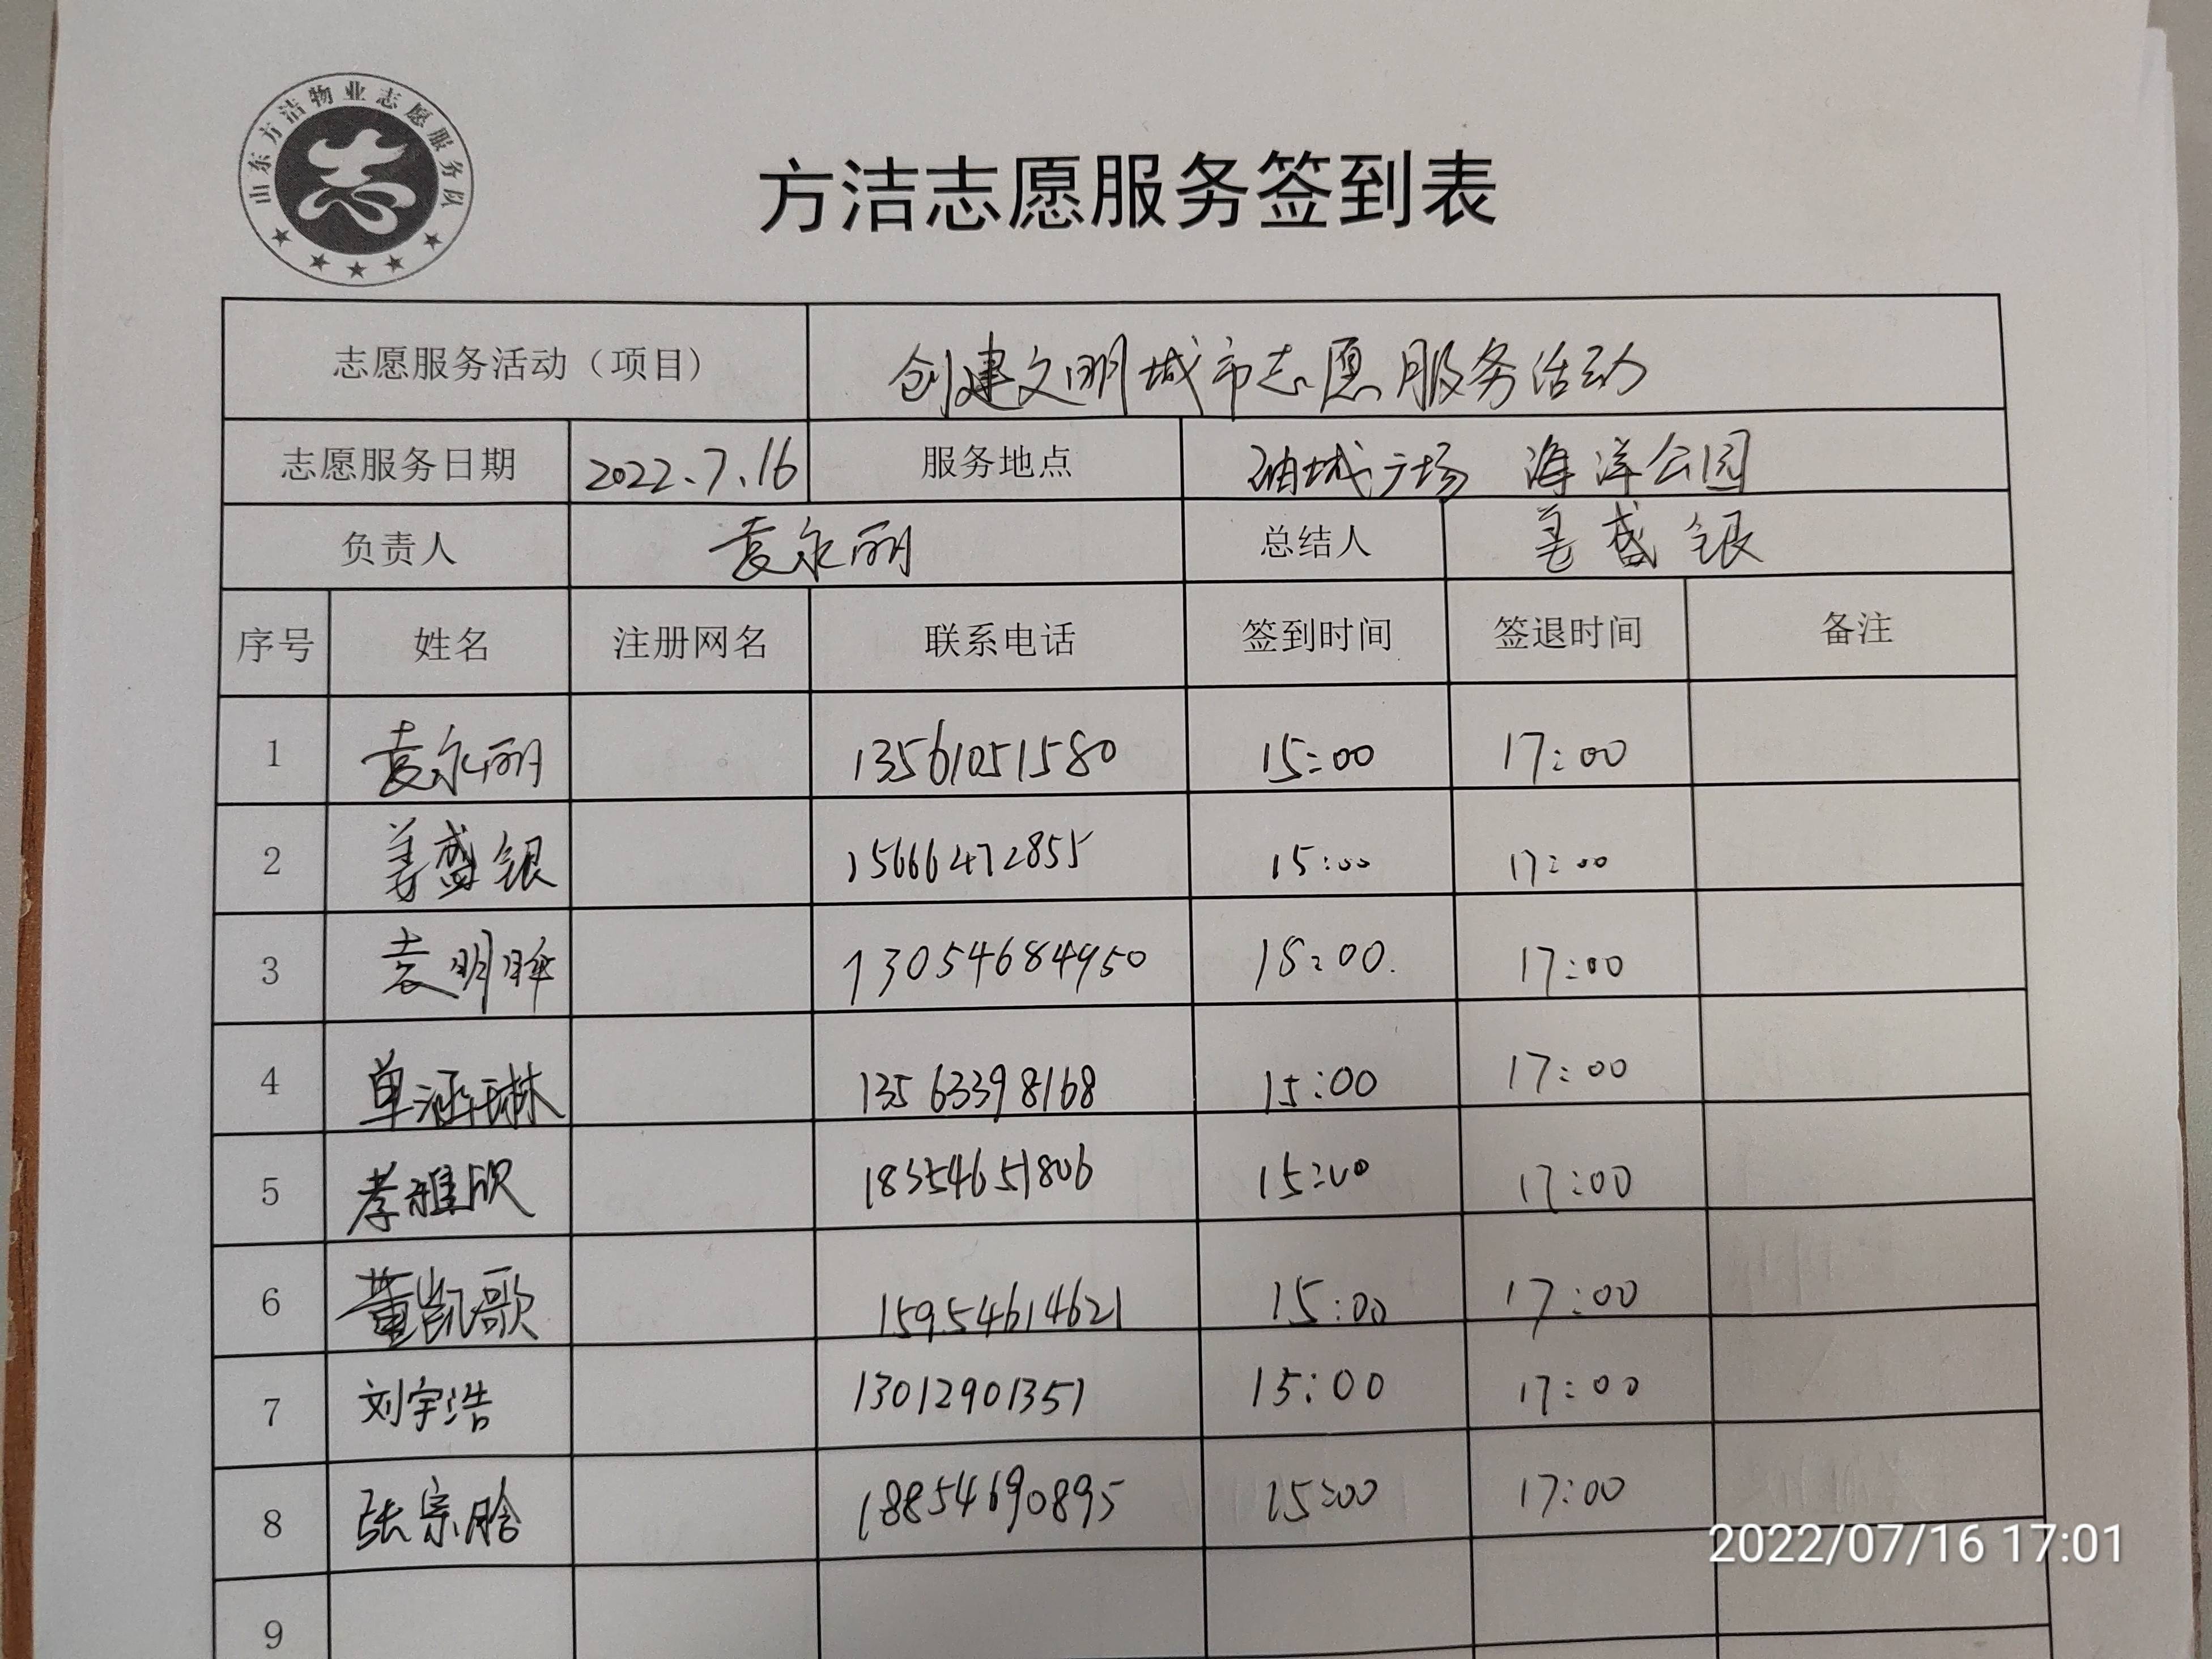 山东方洁物业志愿服务队
方洁志愿服务签到表
志愿服务活动（项目） 创建文明城市志愿服务活动
志愿服务日期 2022.7.16 服务地点 油城广场 海洋公园
负责人 袁永丽 总结人 姜盛银
序号 姓名 注册网名 联系电话 签到时间 签退时间 备注
1 袁永丽 13561051580 15:00 17:00
2 姜盛银 15666472855 15:00 17:00
3 袁明晔 13054684950 15:00 17:00
4 单涵琳 13563398168 15:00 17:00
5 李雅欣 18354651806 15:00 17:00
6 董凯歌 15954614621 15:00 17:00
7 刘宇浩 13012901351 15:00 17:00
8 张宗晗 18854690895 15:00 17:00
9
2022/07/16 17:01